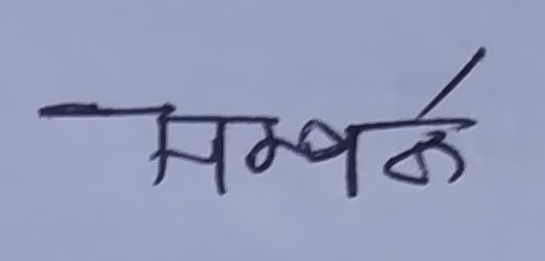 सम्पर्क